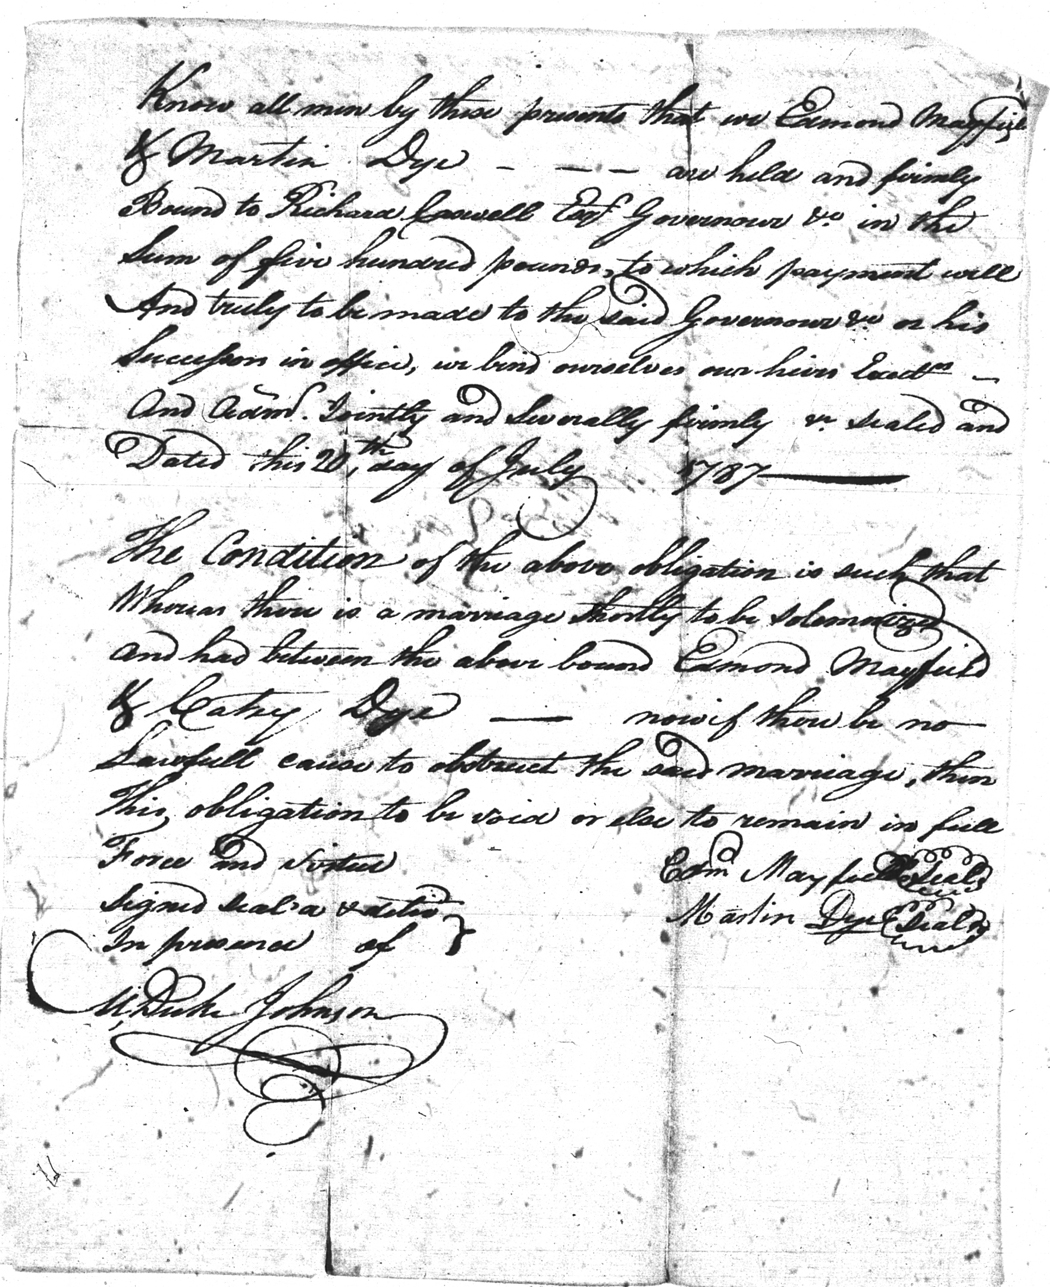 Know all men by these presents that we Edmond Mayfield
& Martin Dye - - - are held and firmly
Bound to Richard Caswell Esqr Governour &c in the
Sum of five hundred pounds, to which payment well
And truly to be made to the said Governour &c or his
Successors in office, we bind ourselves our heirs Exects -
And Adms. Jointly and Severally firmly &c sealed and
Dated this 20th day of July 1787
The Condition of the above obligation is such that
Whereas there is a marriage shortly to be solemnized
and had between the above bound Edmond Mayfield
& Catey Dye — now if there be no
Lawfull cause to obstruct the said marriage, then
this obligation to be void or else to remain in full
Force and virtue
Edmd Mayfield Seal
Signed seal'd &
Martin Dye Seal
In presence of
Duke Johnson